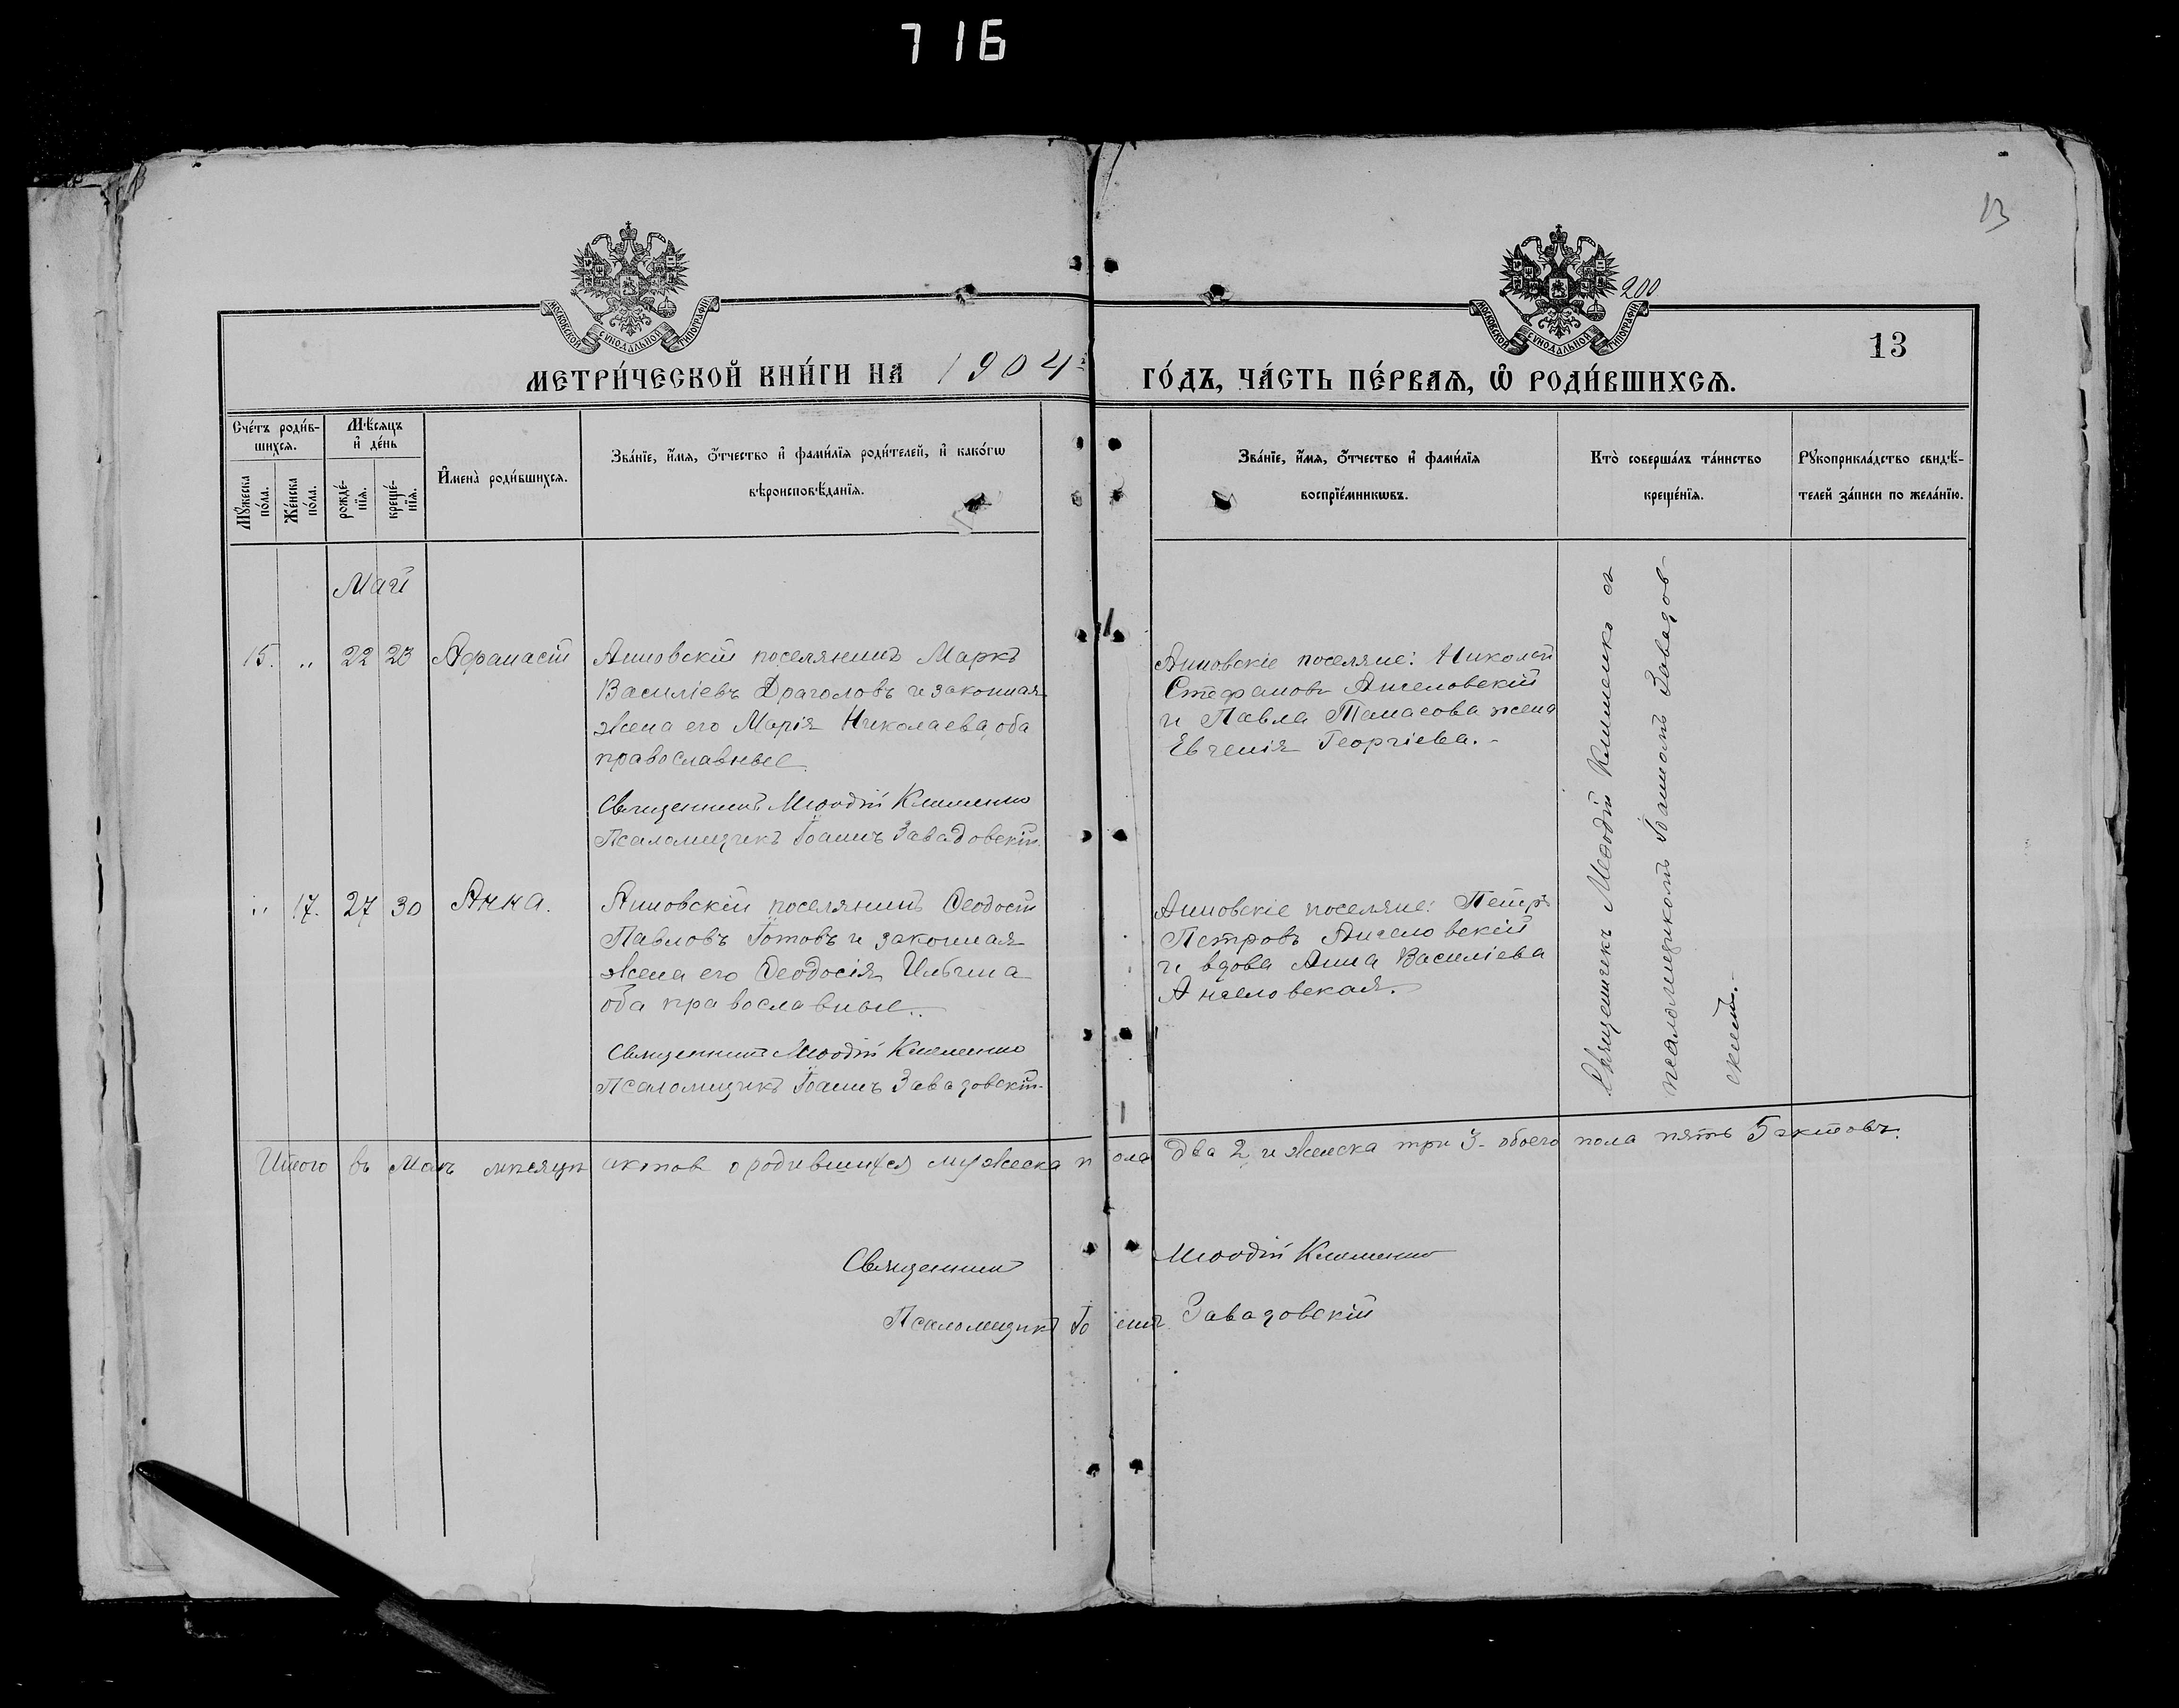 716
13
200
МОСКОВСКОЙ СУНОДАЛЬНОЙ ТИПОГРАФІИ
МОСКОВСКОЙ СУНОДАЛЬНОЙ ТИПОГРАФІИ
13
МЕТРИ́ЧЕСКОЙ КНИ́ГИ НА 1904 ГО́ДЪ, ЧА́СТЬ ПЕ́РВАЯ, Ѽ РОДИ́ВШИХСЯ.
Сче́тъ роди́в-
шихся.
Мꙋ́жеска по́ла.
Же́нска по́ла.
Мѣ́сяцъ
и҆ де́нь
рожде́-
нїя.
креще́-
нїя.
И҆мена̀ роди́вшихся.
Зва́нїе, и҆́мя, ѻ҆́тчество и҆ фами́лїя роди́телей, и҆ како́гѡ
вѣроисповѣ́данїя.
Зва́нїе, и҆́мя, ѻ҆́тчество и҆ фами́лїя
воспрїе́мникѡвъ.
Кто̀ соверша́лъ та́инство
креще́нїя.
Рꙋкоприкла́дство свидѣ́-
телей за́писи по жела́нїю.
Май
15. „ 22 23 Афанасій
Анновскій поселянинъ Маркъ
Василіевъ Драголовъ и законная
жена его Марія Николаева, оба
православные
Священникъ Меѳодій Клименко
Псаломщикъ Іоаннъ Завадовскій
Анновскіе поселяне: Николай
Стефановъ Ангеловскій
и Павла Танасова жена
Евгенія Георгіева.
Священникъ Меѳодій Клименко съ
псаломщикомъ Іоанномъ Завадов-
скимъ.
„ 17. 27 30 Анна.
Анновскій поселянинъ Ѳеодосій
Павловъ Готовъ и законная
жена его Ѳеодосія Ильина
оба православные.
Священникъ Меѳодій Клименко
Псаломщикъ Іоаннъ Завадовскій
Анновскіе поселяне: Петръ
Петровъ Ангеловскій
и вдова Анна Василіева
Ангеловская.
Итого въ Маѣ мѣсяцѣ актовъ о родившихся мужеска пола два 2 и женска три 3. обоего пола пять 5 актовъ.
Священникъ Меѳодій Клименко
Псаломщикъ Іоаннъ Завадовскій